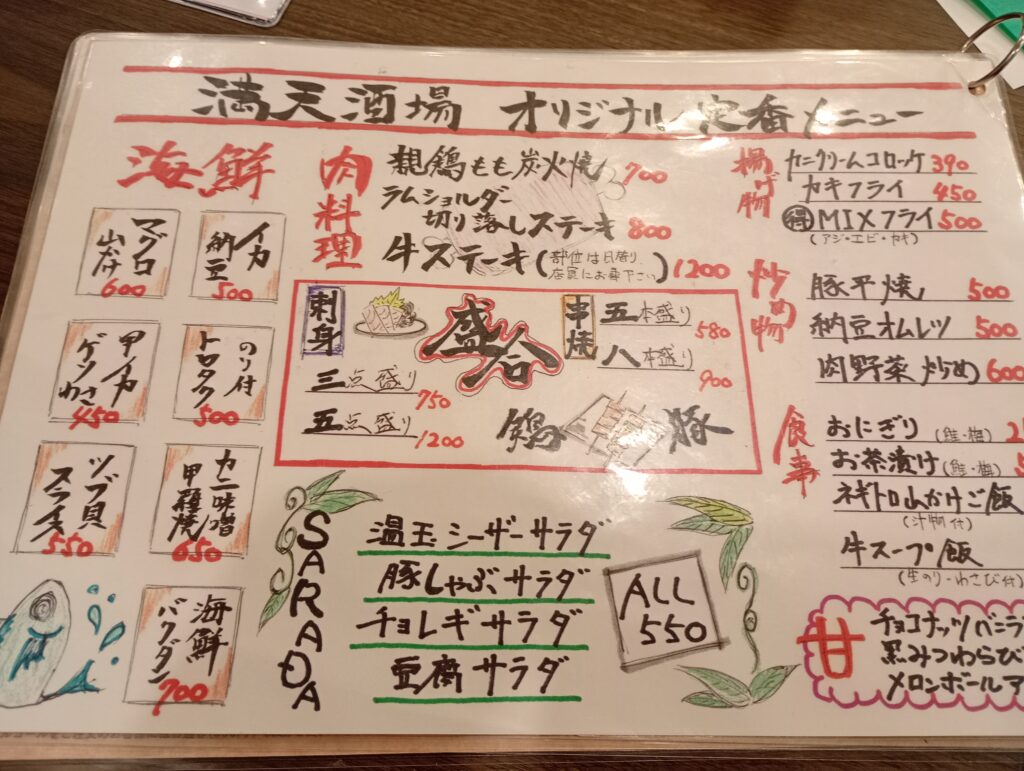 満天酒場 オリジナル定番メニュー
海鮮
マグロ
山かけ
600
イカ
納豆
500
甲イカ
ゲソわさ
450
のり付
トロタク
500
ツブ貝
スライス
550
カニ味噌
甲羅焼
650
海鮮
バクダン
700
肉料理
親鶏もも炭火焼 700
ラムショルダー
切り落しステーキ 800
牛ステーキ(部位は日替り、
店員にお尋下さい) 1200
刺身
盛合
三点盛り
750
五点盛り
1200
串焼
五本盛り
580
八本盛り
900
鶏 豚
SARADA
温玉シーザーサラダ
豚しゃぶサラダ
チョレギサラダ
豆腐サラダ
ALL
550
揚げ物
カニクリームコロッケ 390
カキフライ 450
得 MIXフライ 500
(アジ・エビ・カキ)
炒め物
豚平焼 500
納豆オムレツ 500
肉野菜炒め 600
食事
おにぎり (鮭・梅)
お茶漬け (鮭・梅)
ネギトロ山かけご飯
(汁物付)
牛スープ飯
(生のり・わさび付)
甘
チョコナッツバニラ
黒みつわらび
メロンボールア